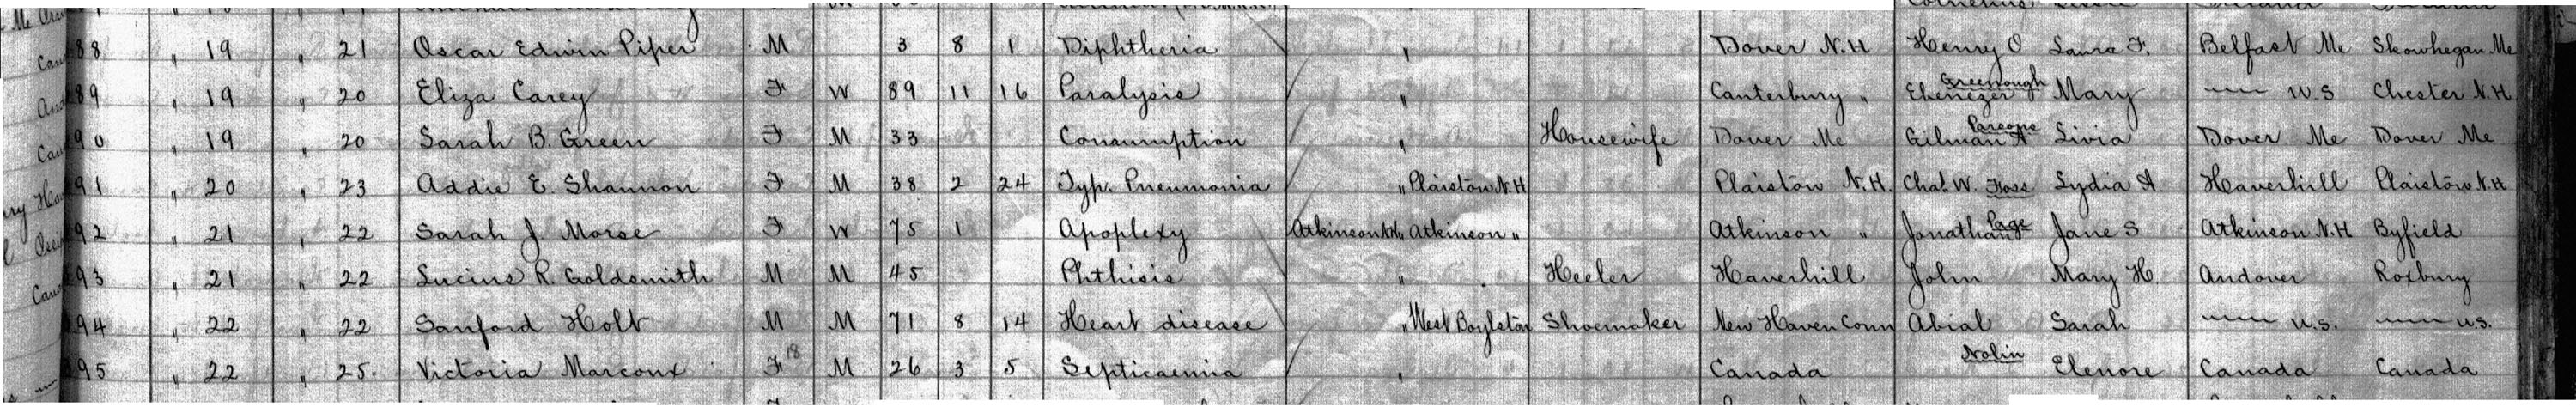 88 " 19 " 21 Oscar Edwin Piper M 3 8 1 Diphtheria " Dover N.H Henry O Laura F. Belfast Me Skowhegan Me
89 " 19 " 20 Eliza Carey F W 89 11 16 Paralysis " Canterbury " Ebenezer Greenough Mary —— U.S Chester N.H
90 " 19 " 20 Sarah B. Green F M 33 Consumption " Housewife Dover Me Gilman A Parsons Livia Dover Me Dover Me
91 " 20 " 23 Addie E. Shannon F M 38 2 24 Typ. Pneumonia " Plaistow N.H Plaistow N.H. Chas. W. Foss Lydia A. Haverhill Plaistow N.H
92 " 21 " 22 Sarah J Morse F W 75 1 Apoplexy Atkinson N.H " Atkinson " Atkinson " Jonathan Page Jane S Atkinson N.H Byfield
93 " 21 " 22 Lucius R. Goldsmith M M 45 Phthisis " Heeler Haverhill John Mary H. Andover Roxbury
94 " 22 " 22 Sanford Holt M M 71 8 14 Heart disease " West Boylston Shoemaker New Haven Conn Abial Sarah —— U.S. —— U.S.
95 " 22 " 25. Victoria Marcoux F 18 M 26 3 5 Septicaemia " Canada Nolin Elenore Canada Canada